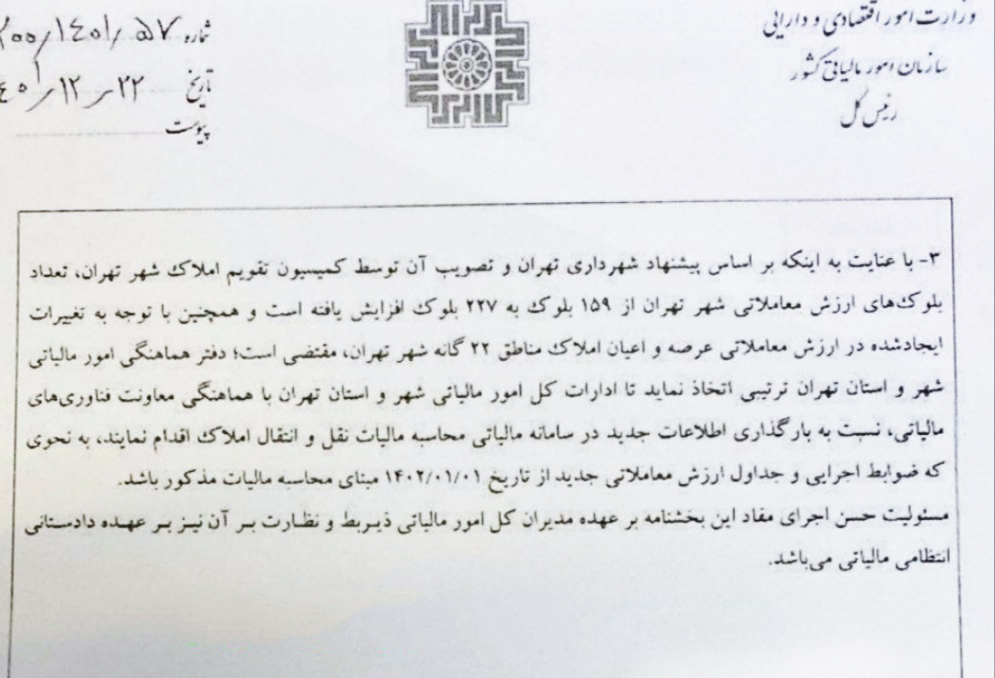 وزارت امور اقتصادی و دارایی
سازمان امور مالیاتی کشور
رئیس کل
شماره ۲۰۰/۱۴۰۱/۵۷
تاریخ ۱۲/۲۲
پیوست
۳- با عنایت به اینکه بر اساس پیشنهاد شهرداری تهران و تصویب آن توسط کمیسیون تقویم املاک شهر تهران، تعداد
بلوک‌های ارزش معاملاتی شهر تهران از ۱۵۹ بلوک به ۲۲۷ بلوک افزایش یافته است و همچنین با توجه به تغییرات
ایجادشده در ارزش معاملاتی عرصه و اعیان املاک مناطق ۲۲ گانه شهر تهران، مقتضی است؛ دفتر هماهنگی امور مالیاتی
شهر و استان تهران ترتیبی اتخاذ نماید تا ادارات کل امور مالیاتی شهر و استان تهران با هماهنگی معاونت فناوری‌های
مالیاتی، نسبت به بارگذاری اطلاعات جدید در سامانه مالیاتی محاسبه مالیات نقل و انتقال املاک اقدام نمایند، به نحوی
که ضوابط اجرایی و جداول ارزش معاملاتی جدید از تاریخ ۱۴۰۲/۰۱/۰۱ مبنای محاسبه مالیات مذکور باشد.
مسئولیت حسن اجرای مفاد این بخشنامه بر عهده مدیران کل امور مالیاتی ذیربط و نظارت بر آن نیز بر عهده دادستانی
انتظامی مالیاتی می‌باشد.